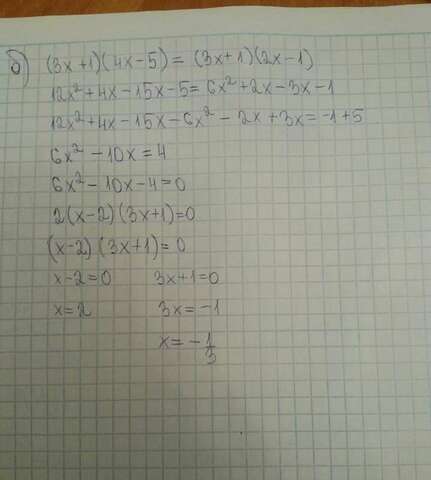 б) (3x+1)(4x-5) = (3x+1)(2x-1)
12x²+4x-15x-5=6x²+2x-3x-1
12x²+4x-15x-6x²-2x+3x=-1+5
6x²-10x=4
6x²-10x-4=0
2(x-2)(3x+1)=0
(x-2)(3x+1)=0
x-2=0 3x+1=0
x=2 3x=-1
x=-1/3